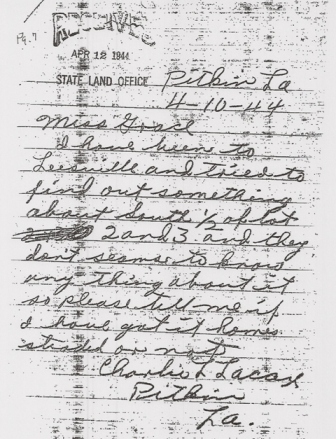 Pg. 7
RECEIVED
APR 12 1944
STATE LAND OFFICE
Pitkin La
4-10-44
Miss Grace
I have been to
Leesville and tried to
find out something
about South 1/2 of lot
2 and 3 and they
dont seams to know
any thing about it
so please tell me if
I have got it homes
steaded or not
Charlie L Lacaze
Pitkin
La.